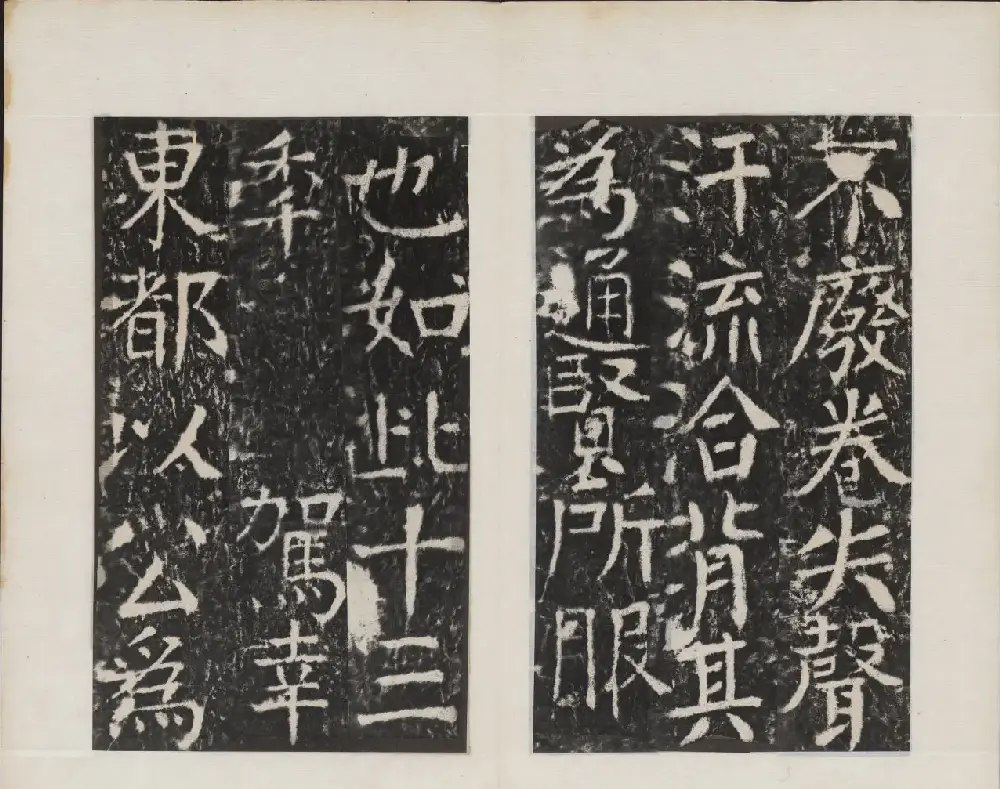 不廢卷失聲
汗流洽背其
為通賢所服
也如此十三
秊 駕幸
東都以公爲